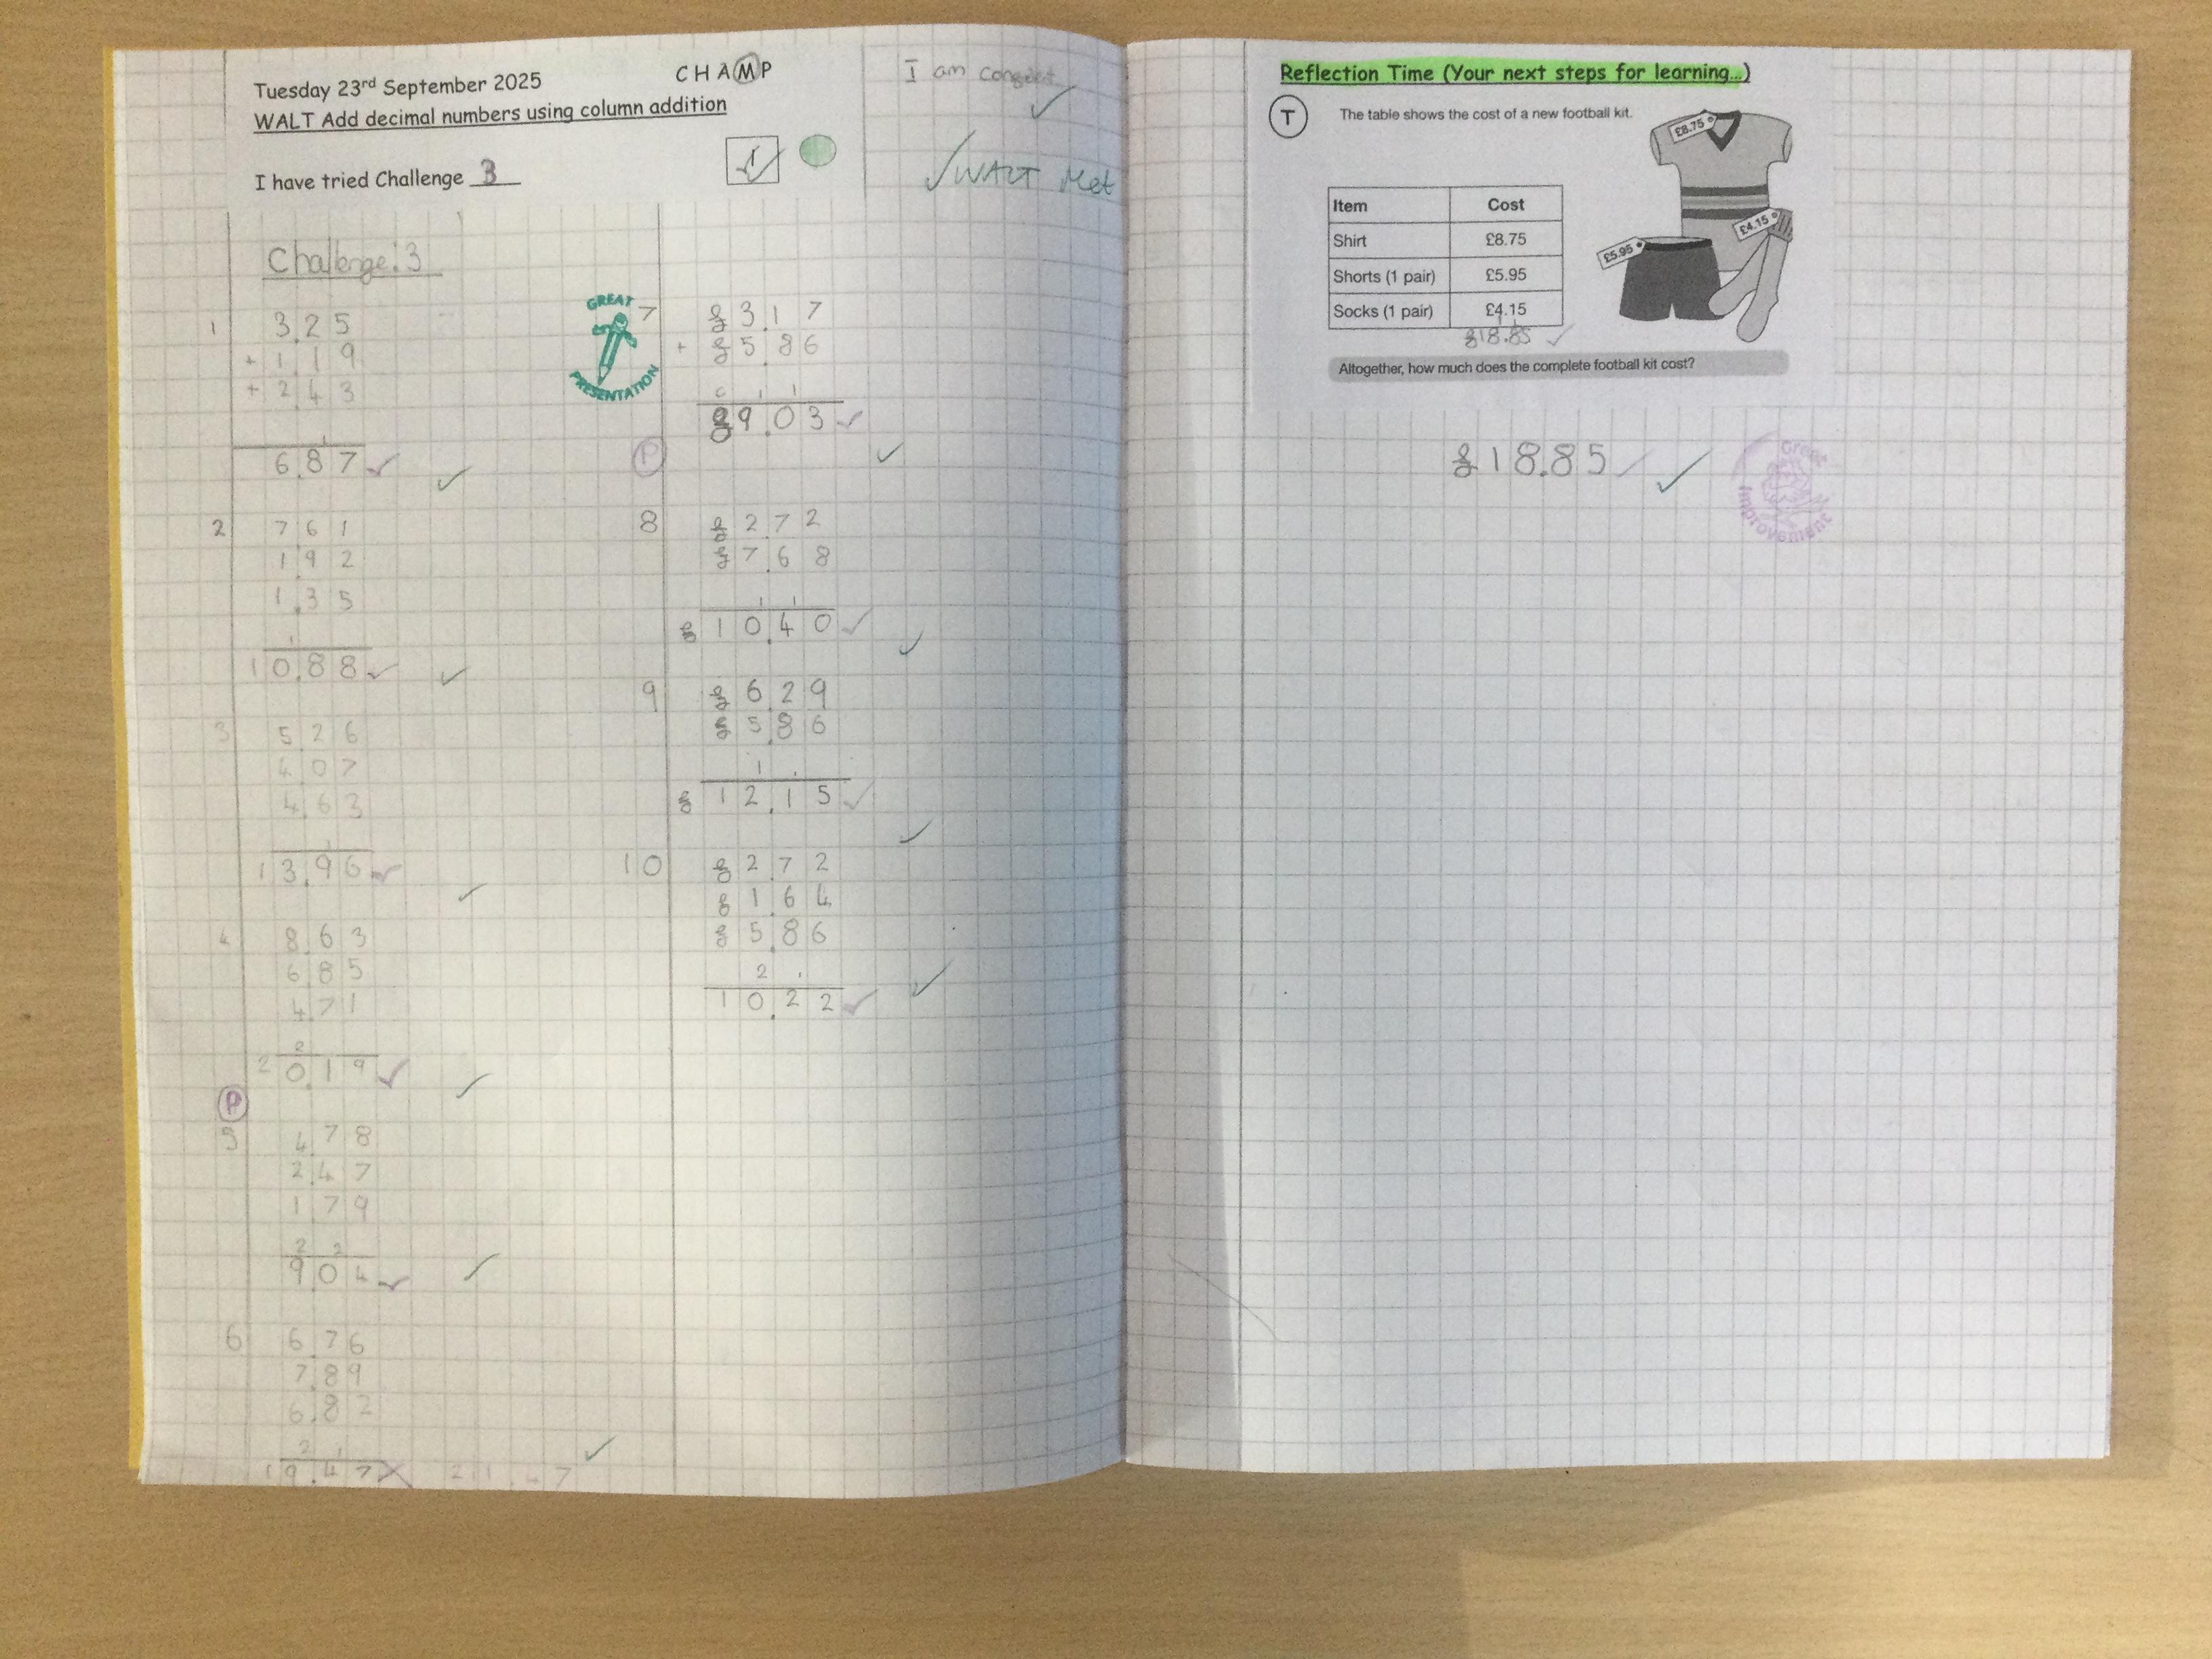 Tuesday 23rd September 2025
CHAMP
WALT Add decimal numbers using column addition
I have tried Challenge 3
I am
✓ WALT Met
Challenge: 3
1
3.25
+ 1.19
+ 2.43
1
6.87
2
7.61
1.92
1.35
1
10.88
3
5.26
4.07
4.63
1
13.96
4
8.63
6.85
4.71
2
20.19
P
5
4.78
2.47
1.79
2 2
9.04
6
6.76
7.89
6.82
2 1
19.47 21.47
GREAT
PRESENTATION
7
£3.17
+ £5.86
1 1
£9.03
P
8
£2.72
£7.68
1 1
£10.40
9
£6.29
£5.86
1 1
£12.15
10
£2.72
£1.64
£5.86
2 1
10.22
Reflection Time (Your next steps for learning...)
T
The table shows the cost of a new football kit.
£8.75
£4.15
£5.95
Item Cost
Shirt £8.75
Shorts (1 pair) £5.95
Socks (1 pair) £4.15
£18.85
Altogether, how much does the complete football kit cost?
£18.85
Great
Improvement